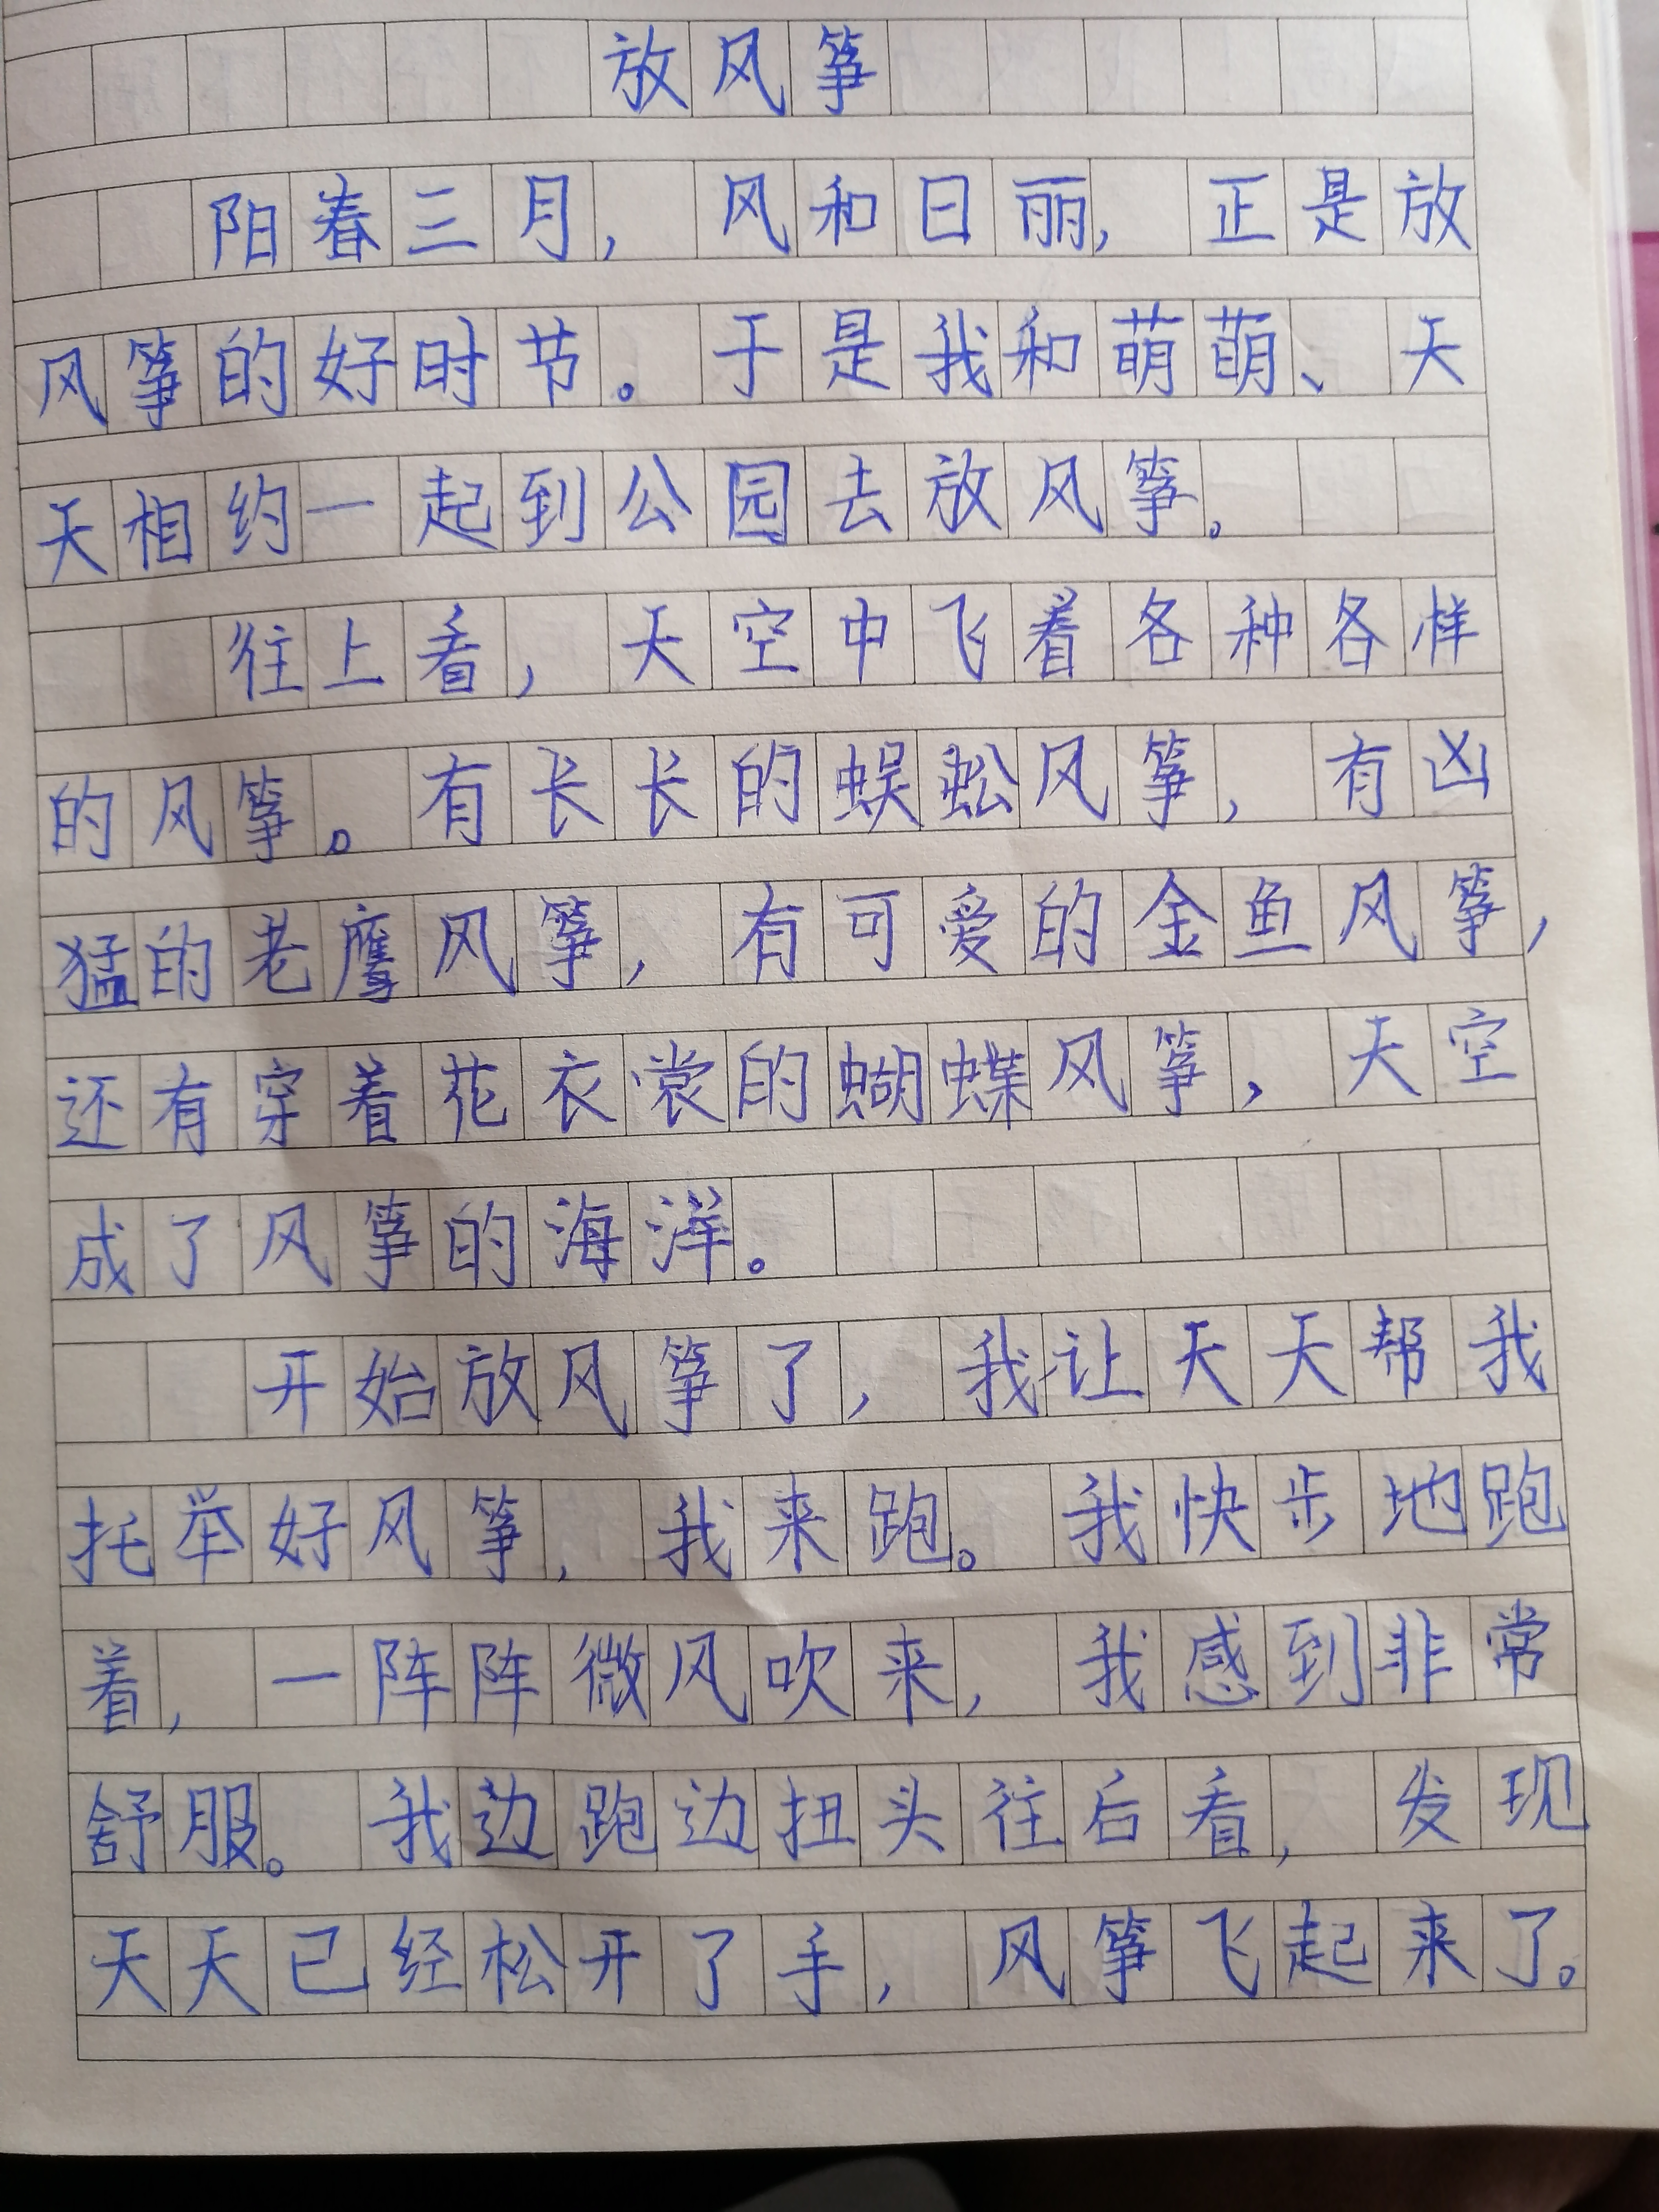 放风筝
阳春三月，风和日丽，正是放
风筝的好时节。于是我和萌萌、天
天相约一起到公园去放风筝。
往上看，天空中飞着各种各样
的风筝。有长长的蜈蚣风筝，有凶
猛的老鹰风筝，有可爱的金鱼风筝，
还有穿着花衣裳的蝴蝶风筝，天空
成了风筝的海洋。
开始放风筝了，我让天天帮我
托举好风筝，我来跑。我快步地跑
着，一阵阵微风吹来，我感到非常
舒服。我边跑边扭头往后看，发现
天天已经松开了手，风筝飞起来了。